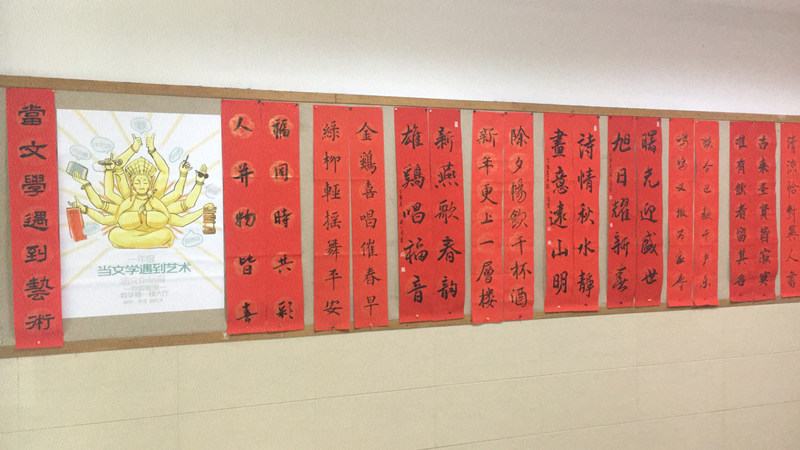 當文學遇到藝術
一年度
当文学遇到艺术
福同時共彩
人并物皆喜
金鷄喜唱催春早
綠柳輕搖舞平安
新燕歌春韵
雄鷄唱福音
除夕暢飲千杯酒
新年更上一層樓
詩情秋水靜
畫意遠山明
曙光迎盛世
旭日耀新春
古來圣賢皆寂寞
唯有飲者留其名